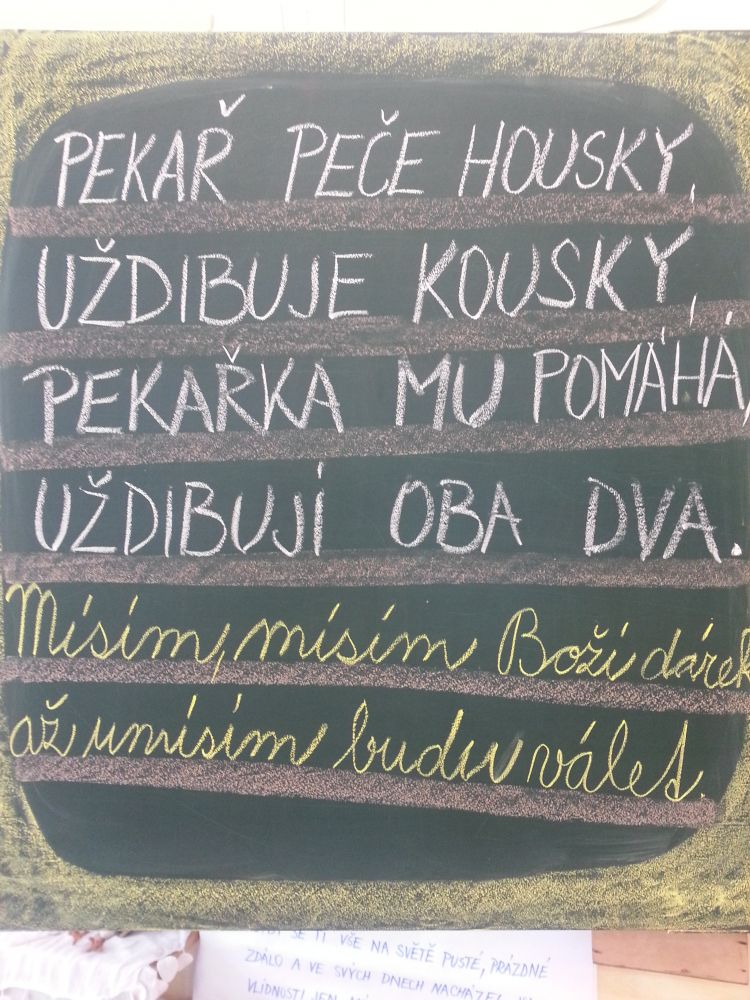 PEKAŘ PEČE HOUSKY,
UŽDIBUJE KOUSKY,
PEKAŘKA MU POMÁHÁ,
UŽDIBUJÍ OBA DVA.
Mísím, mísím Boží dárek
až umísím budu válet.
SE TI VŠE NA SVĚTĚ PUSTÉ, PRÁZDNÉ
ZDÁLO A VE SVÝCH DNECH
VLÍDNOSTI JEN